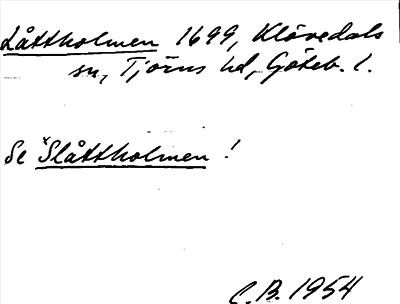 Låttholmen 1699, Klövedals
sn, Tjörns hd, Göteb. l.
Se *Slåttholmen !
C.B. 1954